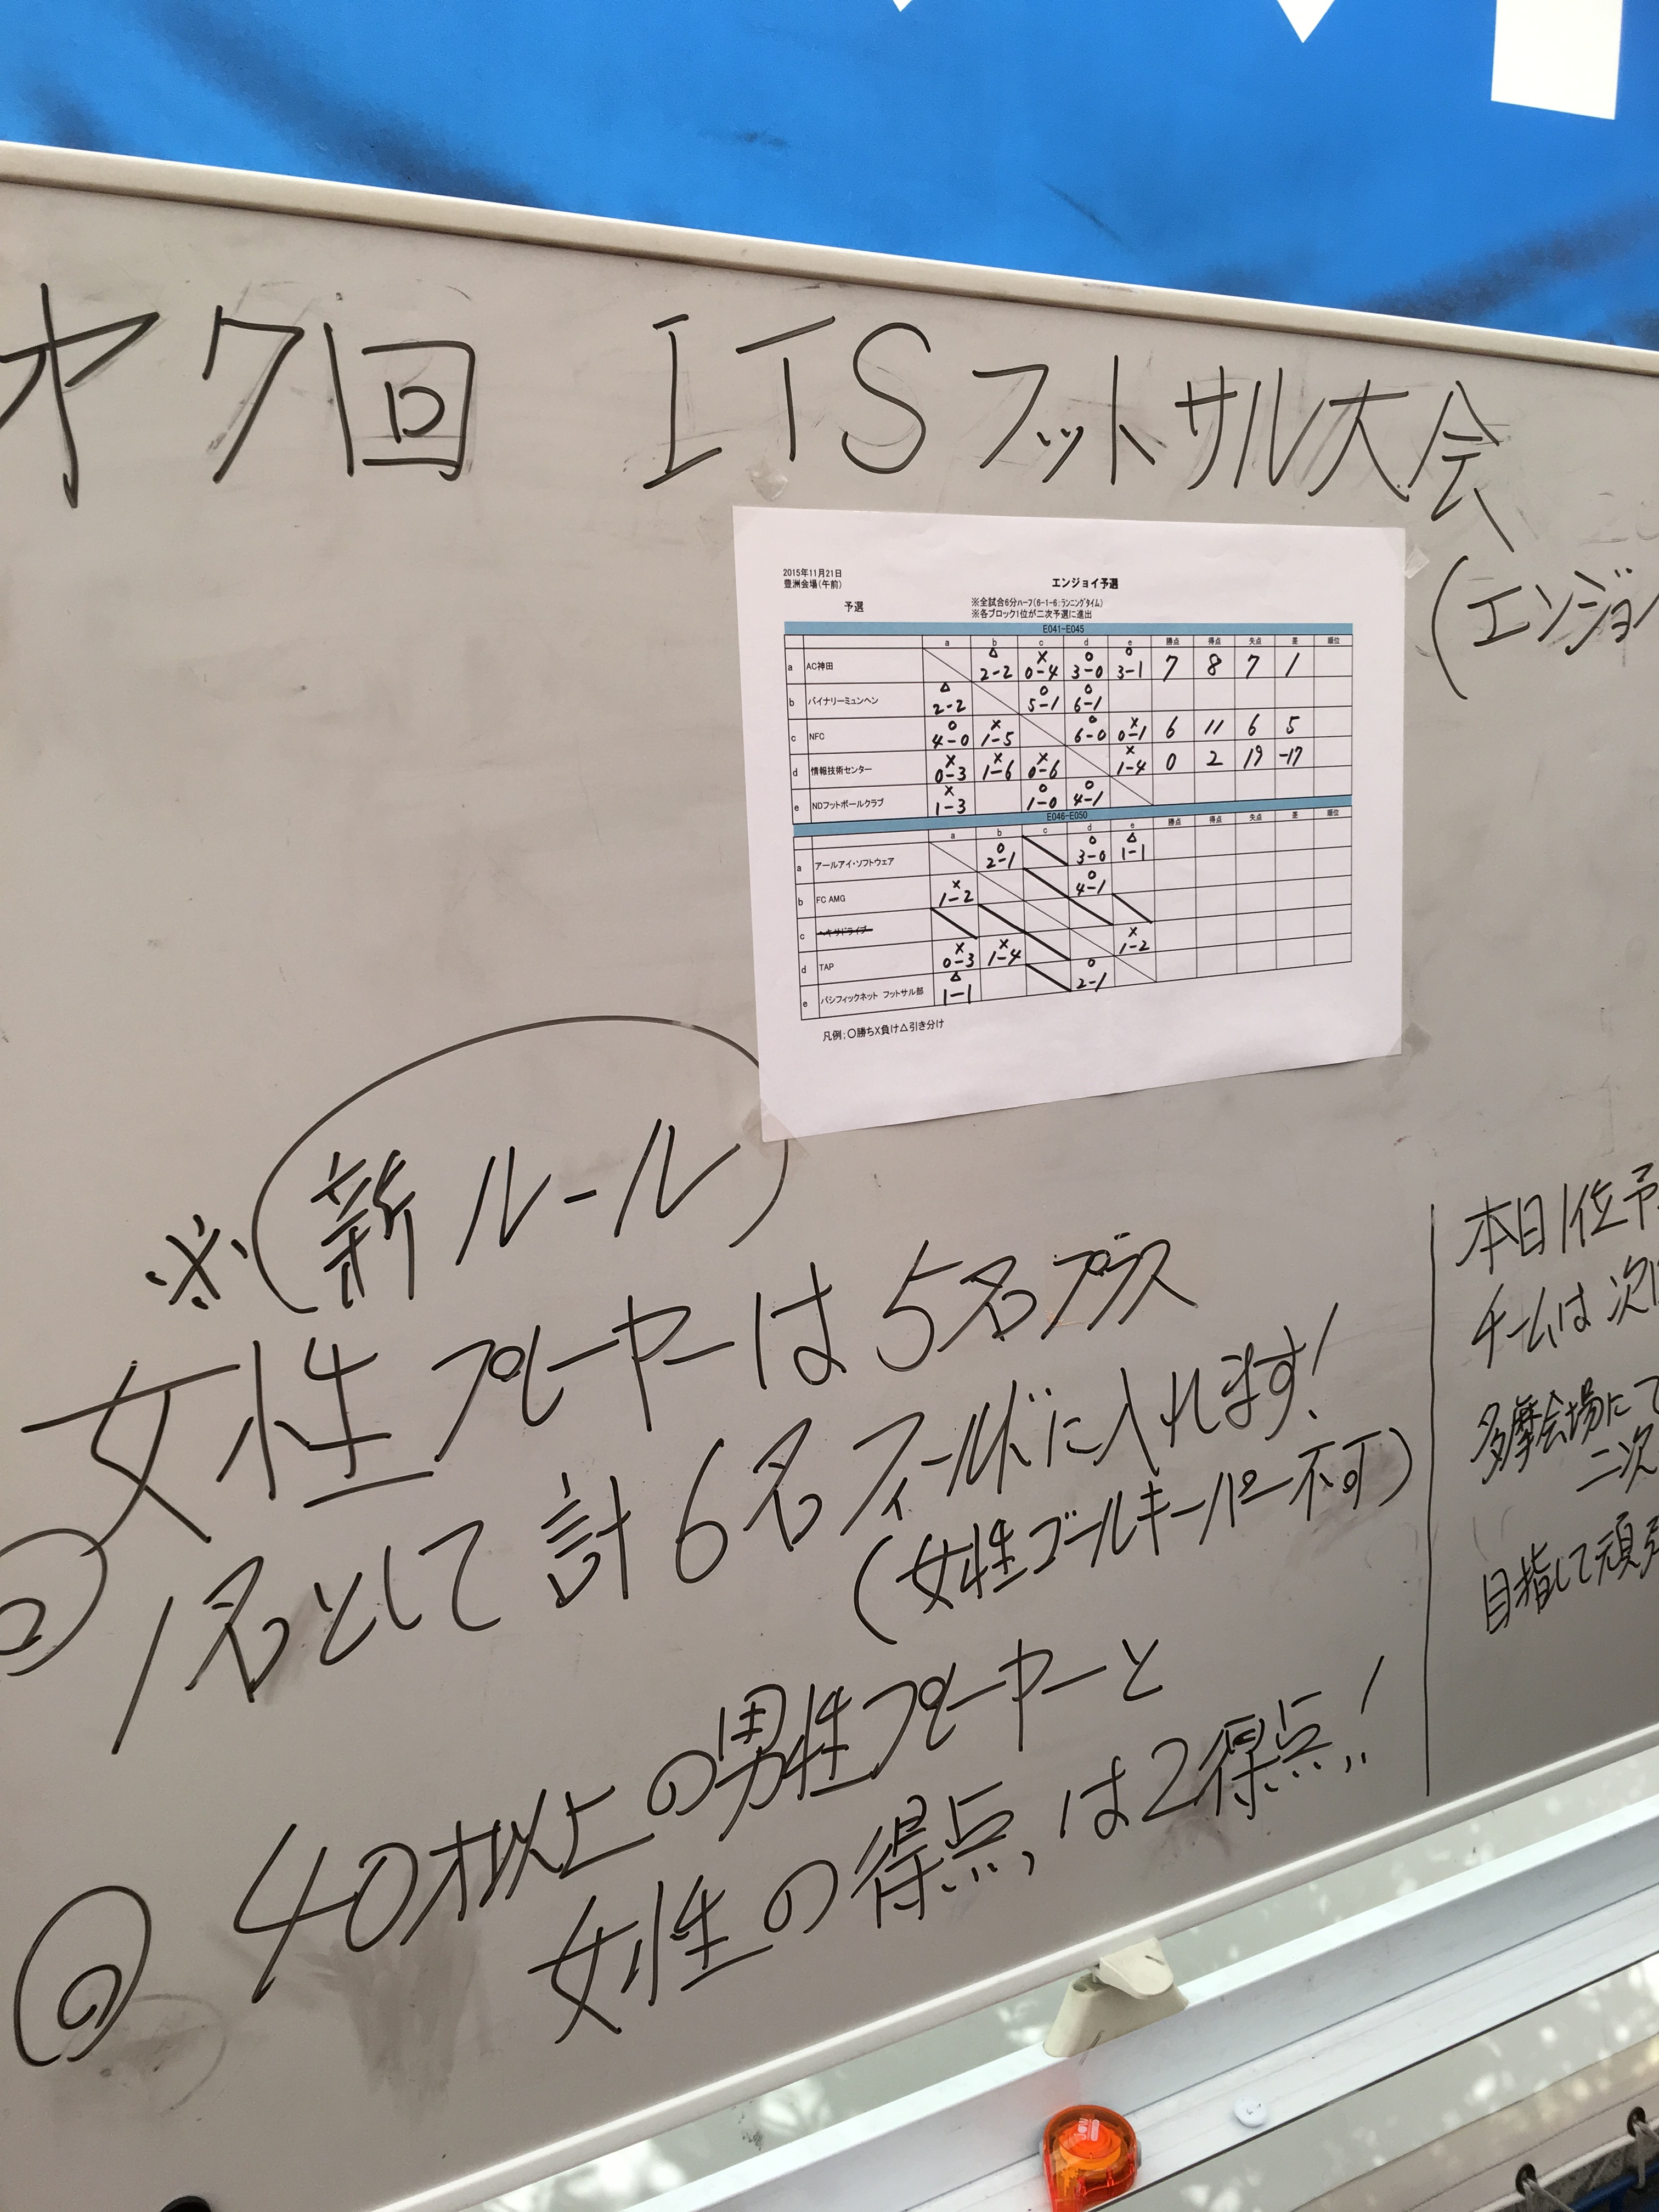 才91回 ITSフットサル大会
(エンジョ
2015年11月21日
豊洲会場(午前)
エンジョイ予選
予選
※全試合6分ハーフ(6-1-6:ランニングタイム)
※各ブロック1位が二次予選に進出
E041-E045
a b c d e 勝点 得点 失点 差 順位
a AC神田 △2-2 ×0-4 ○3-0 ○3-1 7 8 7 1
b バイナリーミュンヘン △2-2 ○5-1 ○6-1
c NFC ○4-0 ×1-5 ○6-0 ×0-1 6 11 6 5
d 情報技術センター ×0-3 ×1-6 ×0-6 ×1-4 0 2 19 -17
e NDフットボールクラブ ×1-3 ○1-0 ○4-1
E046-E050
a b c d e 勝点 得点 失点 差 順位
a アールアイ・ソフトウェア ○2-1 ○3-0 △1-1
b FC AMG ×1-2 ○4-1
c ヘキサドライブ
d TAP ×0-3 ×1-4 ×1-2
e パシフィックネット フットサル部 △1-1 ○2-1
凡例;○勝ち×負け△引き分け
※新ルール
◎女性プレーヤーは5名プラス
1名として計6名フィールドに入れます!
(女性ゴールキーパー不可)
◎40才以上の男性プレーヤーと
女性の得点は2得点!
本日1位予
チームは次
多摩会場にて
二次
目指して頑張